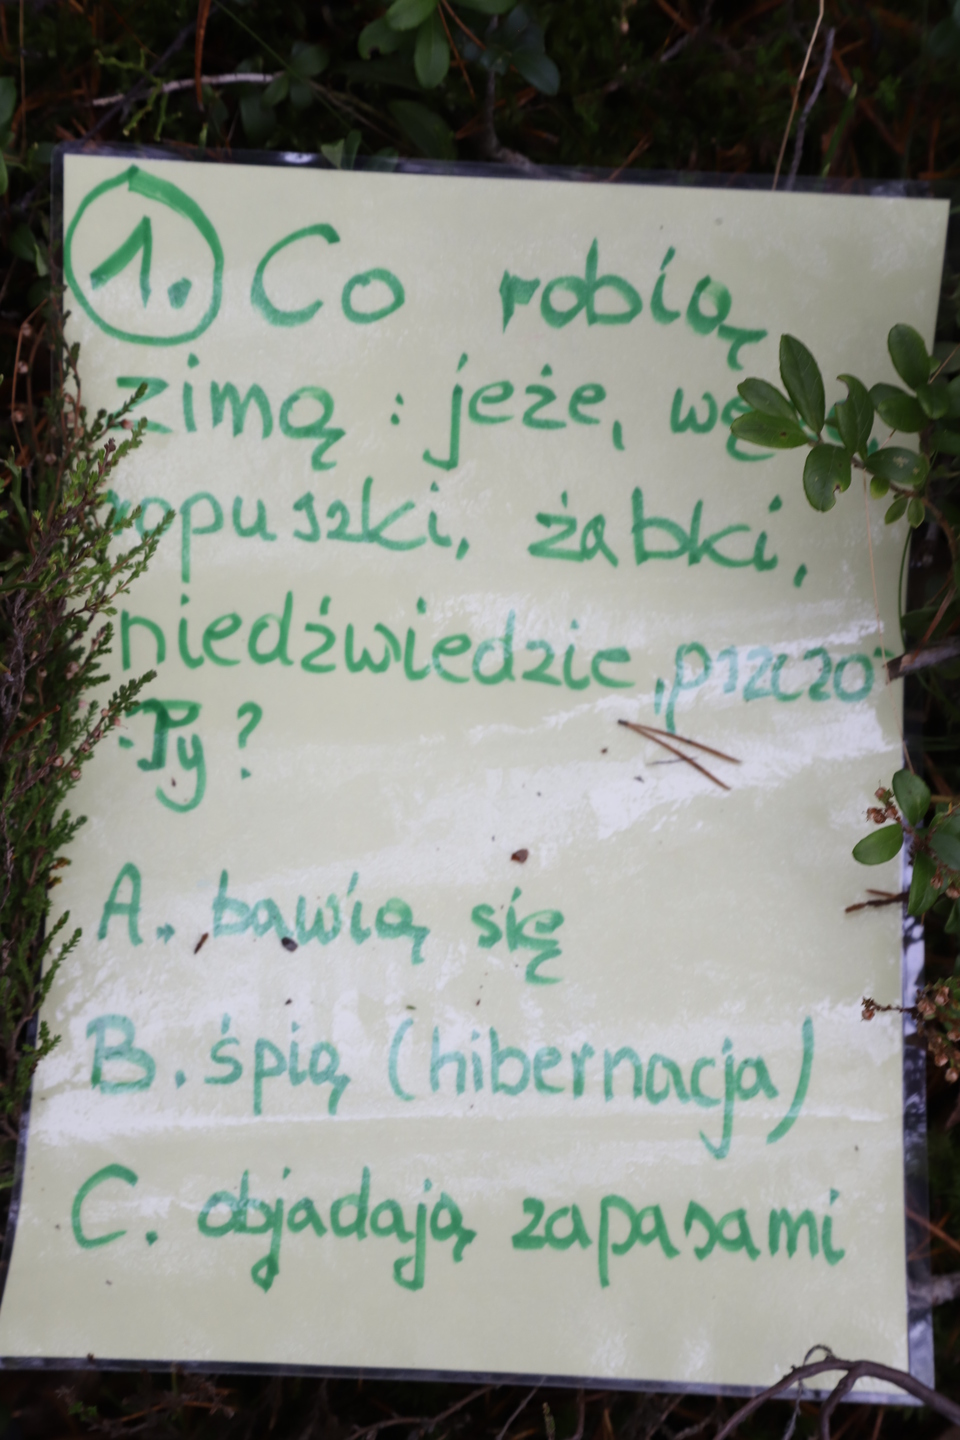 1. Co robią
zimą : jeże,
ropuszki, żabki,
niedźwiedzie, pszczo-
-ły?
A. bawią się
B. śpią (hibernacja)
C. objadają zapasami